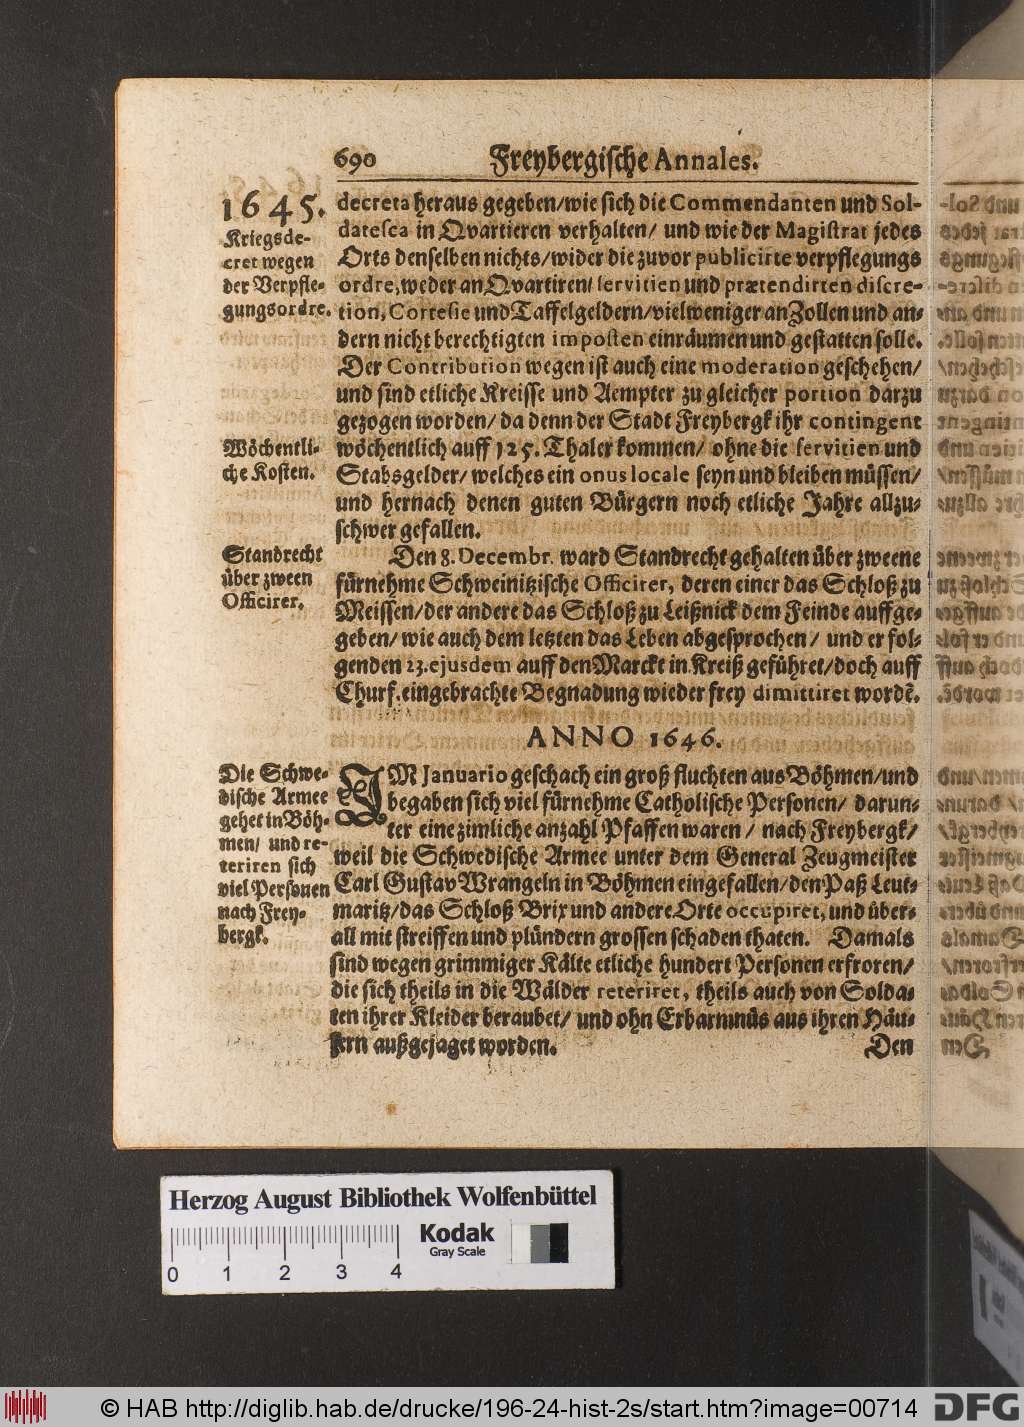 690 Freybergische Annales.
1645.
Kriegsde-
cret wegen
der Verpfle-
gungsordre.
decreta heraus gegeben/wie sich die Commendanten und Sol-
datesca in Qvartieren verhalten/ und wie der Magistrat jedes
Orts denselben nichts/wider die zuvor publicirte verpflegungs
ordre, weder an Qvartiren/ servitien und prætendirten discre-
tion, Cortesie und Taffelgeldern/vielweniger an Zollen und an-
dern nicht berechtigten imposten einräumen und gestatten solle.
Der Contribution wegen ist auch eine moderation geschehen/
und sind etliche Kreisse und Aempter zu gleicher portion darzu
gezogen worden/ da denn der Stadt Freybergk ihr contingent
Wöchentli-
che Kosten.
wöchentlich auff 125. Thaler kommen/ ohne die servitien und
Stabsgelder/ welches ein onus locale seyn und bleiben müssen/
und hernach denen guten Bürgern noch etliche Jahre allzu-
schwer gefallen.
Standrecht
über zween
Officirer.
Den 8. Decembr. ward Standrecht gehalten über zweene
fürnehme Schweinitzische Officirer, deren einer das Schloß zu
Meissen/der andere das Schloß zu Leißnick dem Feinde auffge-
geben/ wie auch dem letzten das Leben abgesprochen/ und er fol-
genden 23. ejusdem auff den Marckt in Kreiß geführet/doch auff
Churf. eingebrachte Begnadung wieder frey dimittiret wordē.
ANNO 1646.
Die Schwe-
dische Armee
gehet in Böh-
men/ und re-
teriren sich
viel Personen
nach Frey-
bergk.
IM Januario geschach ein groß fluchten aus Böhmen/und
begaben sich viel fürnehme Catholische Personen/ darun-
ter eine zimliche anzahl Pfaffen waren/ nach Freybergk/
weil die Schwedische Armee unter dem General Zeugmeister
Carl Gustav Wrangeln in Böhmen eingefallen/den Paß Leut-
maritz/das Schloß Brix und andere Orte occupiret, und über-
all mit streiffen und plündern grossen schaden thaten. Damals
sind wegen grimmiger Kälte etliche hundert Personen erfroren/
die sich theils in die Wälder reteriret, theils auch von Solda-
ten ihrer Kleider beraubet/ und ohn Erbarmnüs aus ihren Häu-
sern außgejaget worden.
Den
Herzog August Bibliothek Wolfenbüttel
Kodak
Gray Scale
0 1 2 3 4
© HAB http://diglib.hab.de/drucke/196-24-hist-2s/start.htm?image=00714
DFG